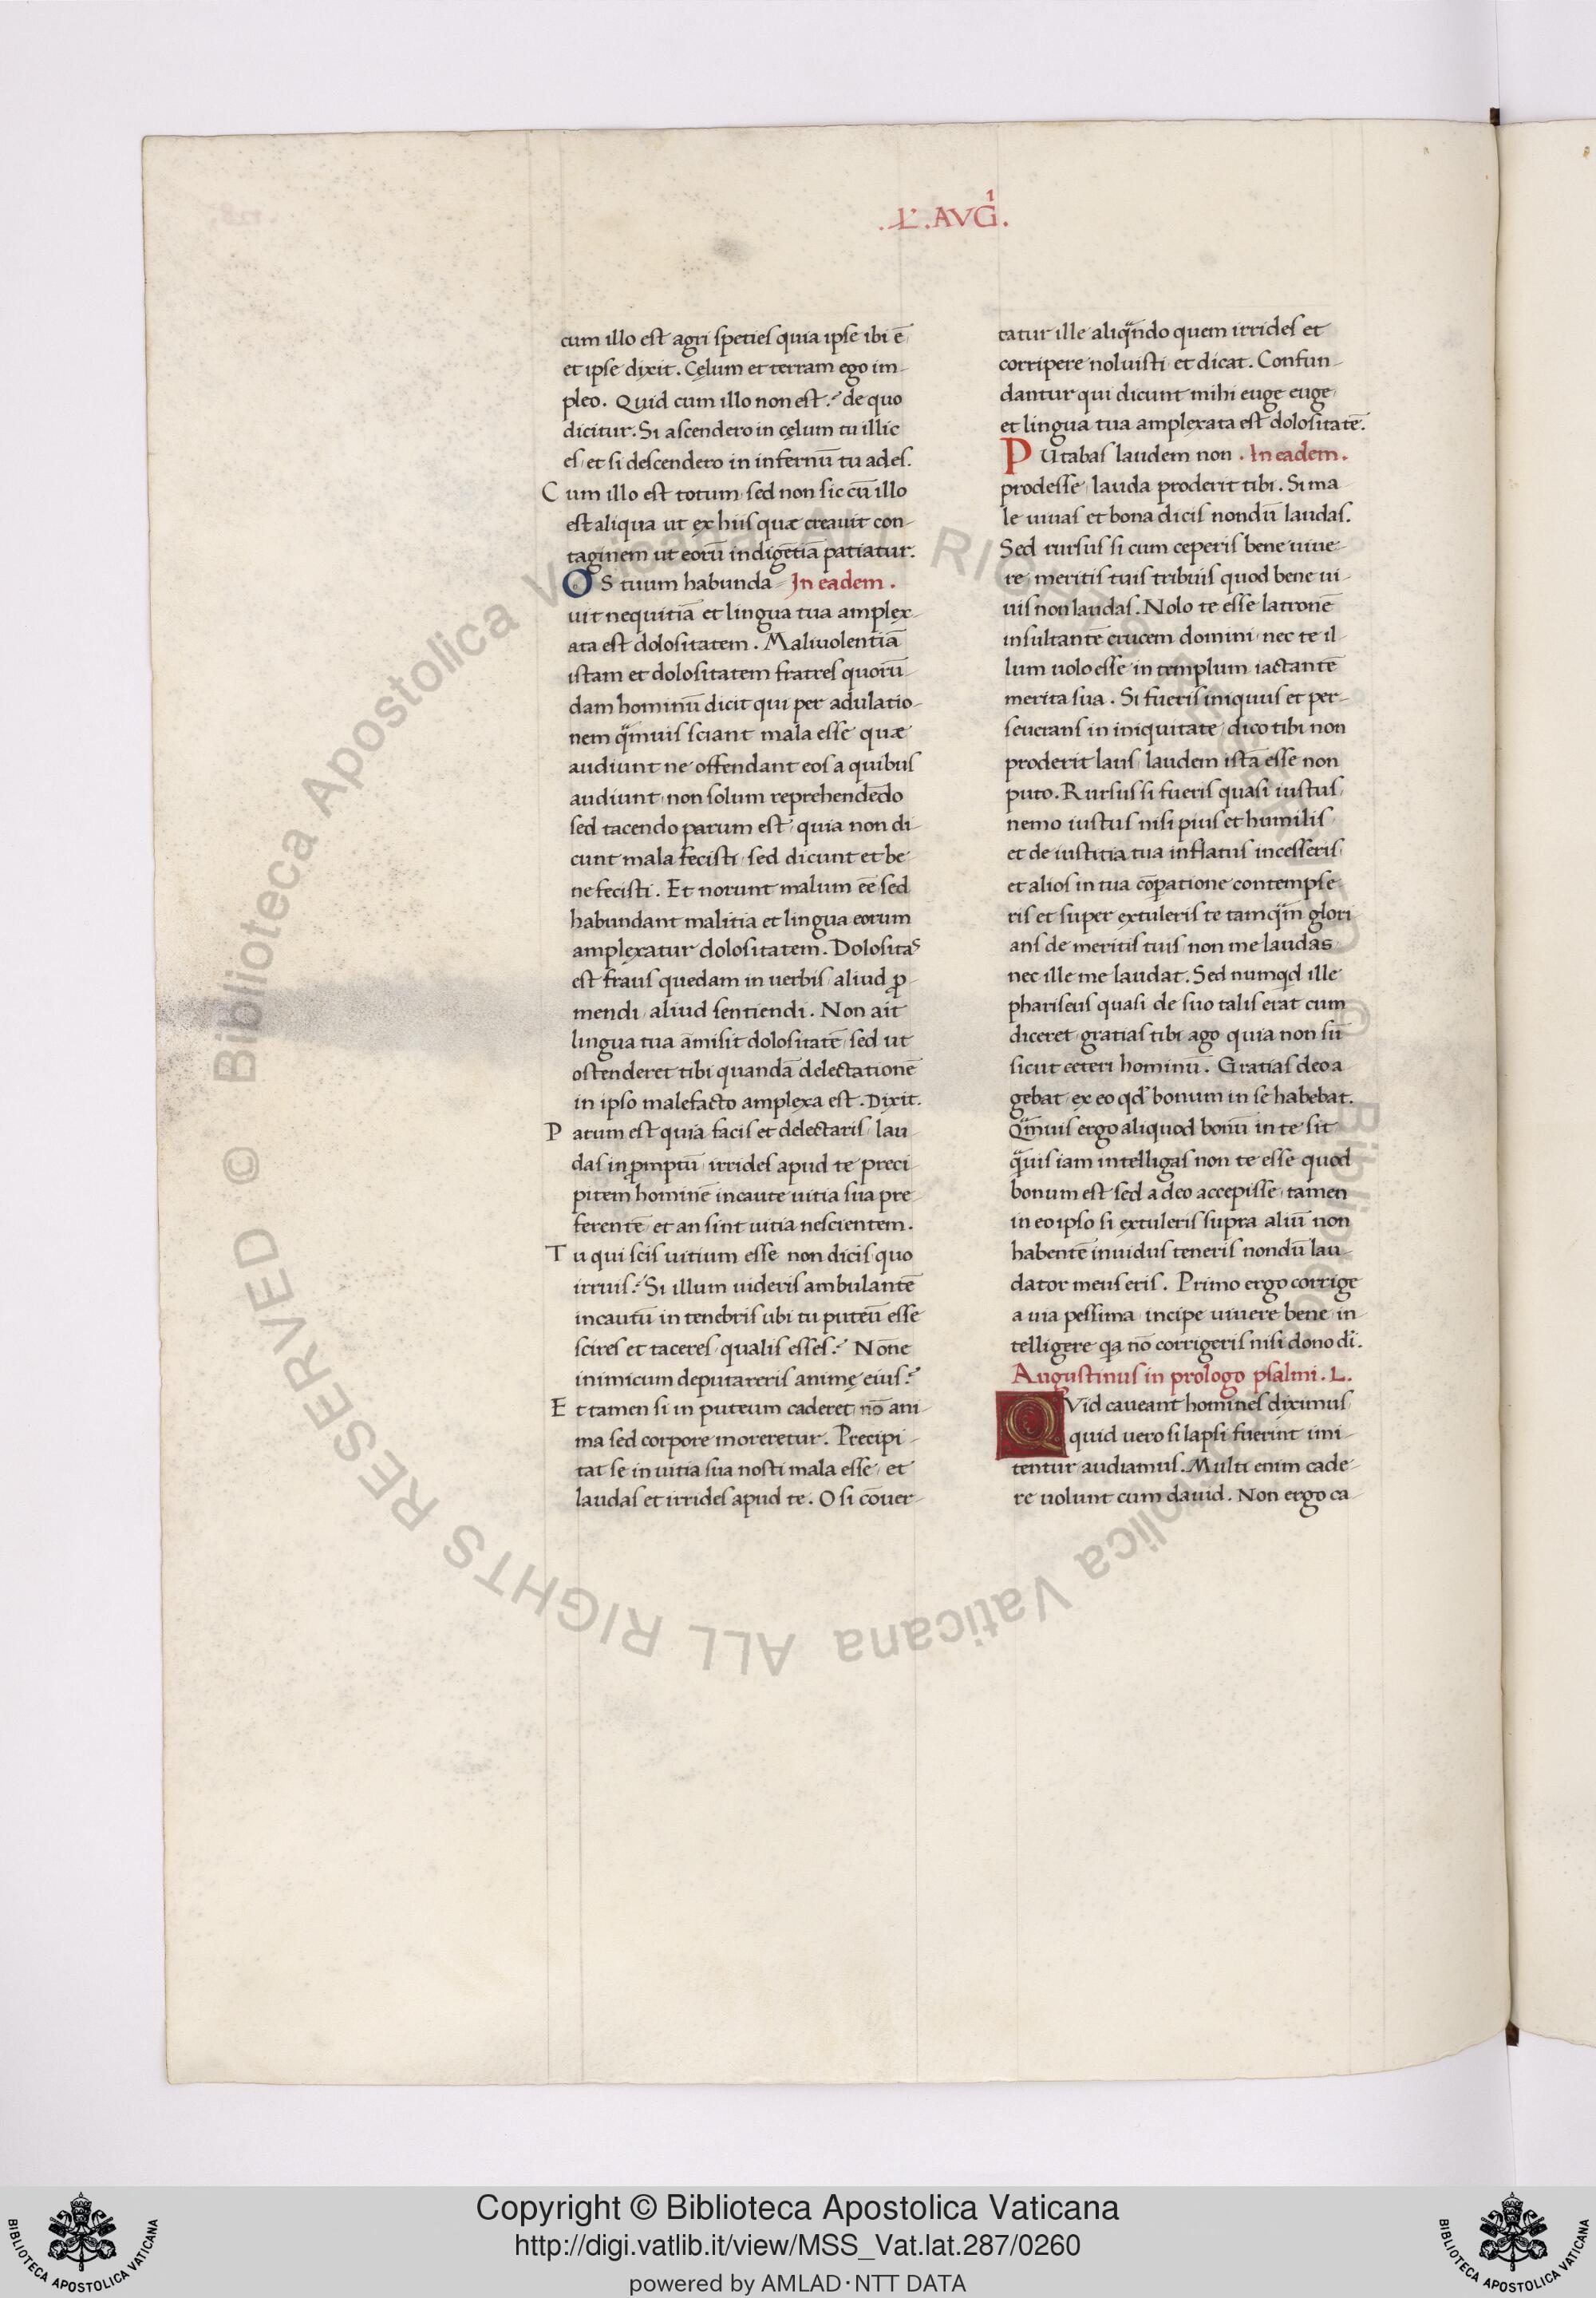 .L'.AVG1.
cum illo est agri speties quia ipse ibi ē
et ipse dixit. Cęlum et terram ego im-
pleo. Quid cum illo non est? de quo
dicitur. Si ascendero in cęlum tu illic
es, et si descendero in infernū tu ades.
Cum illo est totum, sed non sic cū illo
est aliqua ut ex hiis quæ creavit con-
taginem ut eorū indigētiā patiatur.
OS tuum habunda- In eadem.
uit nequitiā et lingua tua amplex-
ata est dolositatem. Malivolentiā
istam et dolositatem fratres quorū-
dam hominū dicit qui per adulatio-
nem q̄muis sciant mala esse quæ
audiunt ne offendant eos a quibus
audiunt, non solum reprehendēdo
sed tacendo parum est, quia non di-
cunt mala fecisti, sed dicunt et be-
ne fecisti. Et norunt malum eē sed
habundant malitia et lingua eorum
amplexatur dolositatem. Dolositas
est fraus quedam in uerbis, aliud ꝓ-
mendi, aliud sentiendi. Non ait
lingua tua āmisit dolositatē, sed ut
ostenderet tibi quandā delectationē
in ipso malefacto amplexa est. Dixit.
Parum est quia facis et delectaris, lau-
das in ꝓmptū, irrides apud te preci-
pitem hominē incaute uitia sua pre-
ferentē, et an sint uitia nescientem.
Tu qui scis uitium esse non dicis, quo
irruis? Si illum uideris ambulantē
incautū in tenebris ubi tu puteū esse
scires et taceres, qualis esses? Nōne
inimicum deputareris animę eius?
Et tamen si in puteum caderet, nō ani-
ma sed corpore moreretur. Precipi-
tat se in uitia sua nosti mala esse, et
laudas et irrides apud te. O si cōuer-
tatur ille aliq̄ndo quem irrides et
corripere noluisti et dicat. Confun-
dantur qui dicunt mihi euge euge,
et lingua tua amplexata est dolositatē.
PUtabas laudem non. In eadem.
prodesse, lauda proderit tibi. Si ma-
le uiuas et bona dicis nondū laudas.
Sed rursus si cum ceperis bene uiue-
re, meritis tuis tribuis quod bene ui-
uis non laudas. Nolo te esse latronē
insultantē crucem domini, nec te il-
lum uolo esse in templum iactantē
merita sua. Si fueris iniquus et per-
seuerans in iniquitate, dico tibi non
proderit laus, laudem istā esse non
puto. Rursus si fueris quasi iustus,
nemo iustus nisi pius et humilis,
et de iustitia tua inflatus incesseris,
et alios in tua cōpatione contempse-
ris et super extuleris te tamq̄m glori-
ans de meritis tuis, non me laudas
nec ille me laudat. Sed numqd ille
phariseus quasi de suo talis erat cum
diceret, gratias tibi ago quia non sū
sicut ceteri hominū. Gratias deo a
gebat, ex eo qd bonum in se habebat.
Q̄muis ergo aliquod bonū in te sit
q̄uis iam intelligas non te esse quod
bonum est sed a deo accepisse, tamen
in eo ipso si extuleris supra aliū non
habentē inuidus teneris nondū lau-
dator meus eris. Primo ergo corrige
a uia pessima, incipe uiuere bene, in-
telligere qa nō corrigeris nisi dono dī.
Augustinus in prologo psalmi. L.
QVid caveant homines diximus,
quid uero si lapsi fuerint imi-
tentur audiamus. Multi enim cade-
re uolunt cum dauid. Non ergo ca-
Copyright © Biblioteca Apostolica Vaticana
http://digi.vatlib.it/view/MSS_Vat.lat.287/0260
powered by AMLAD·NTT DATA